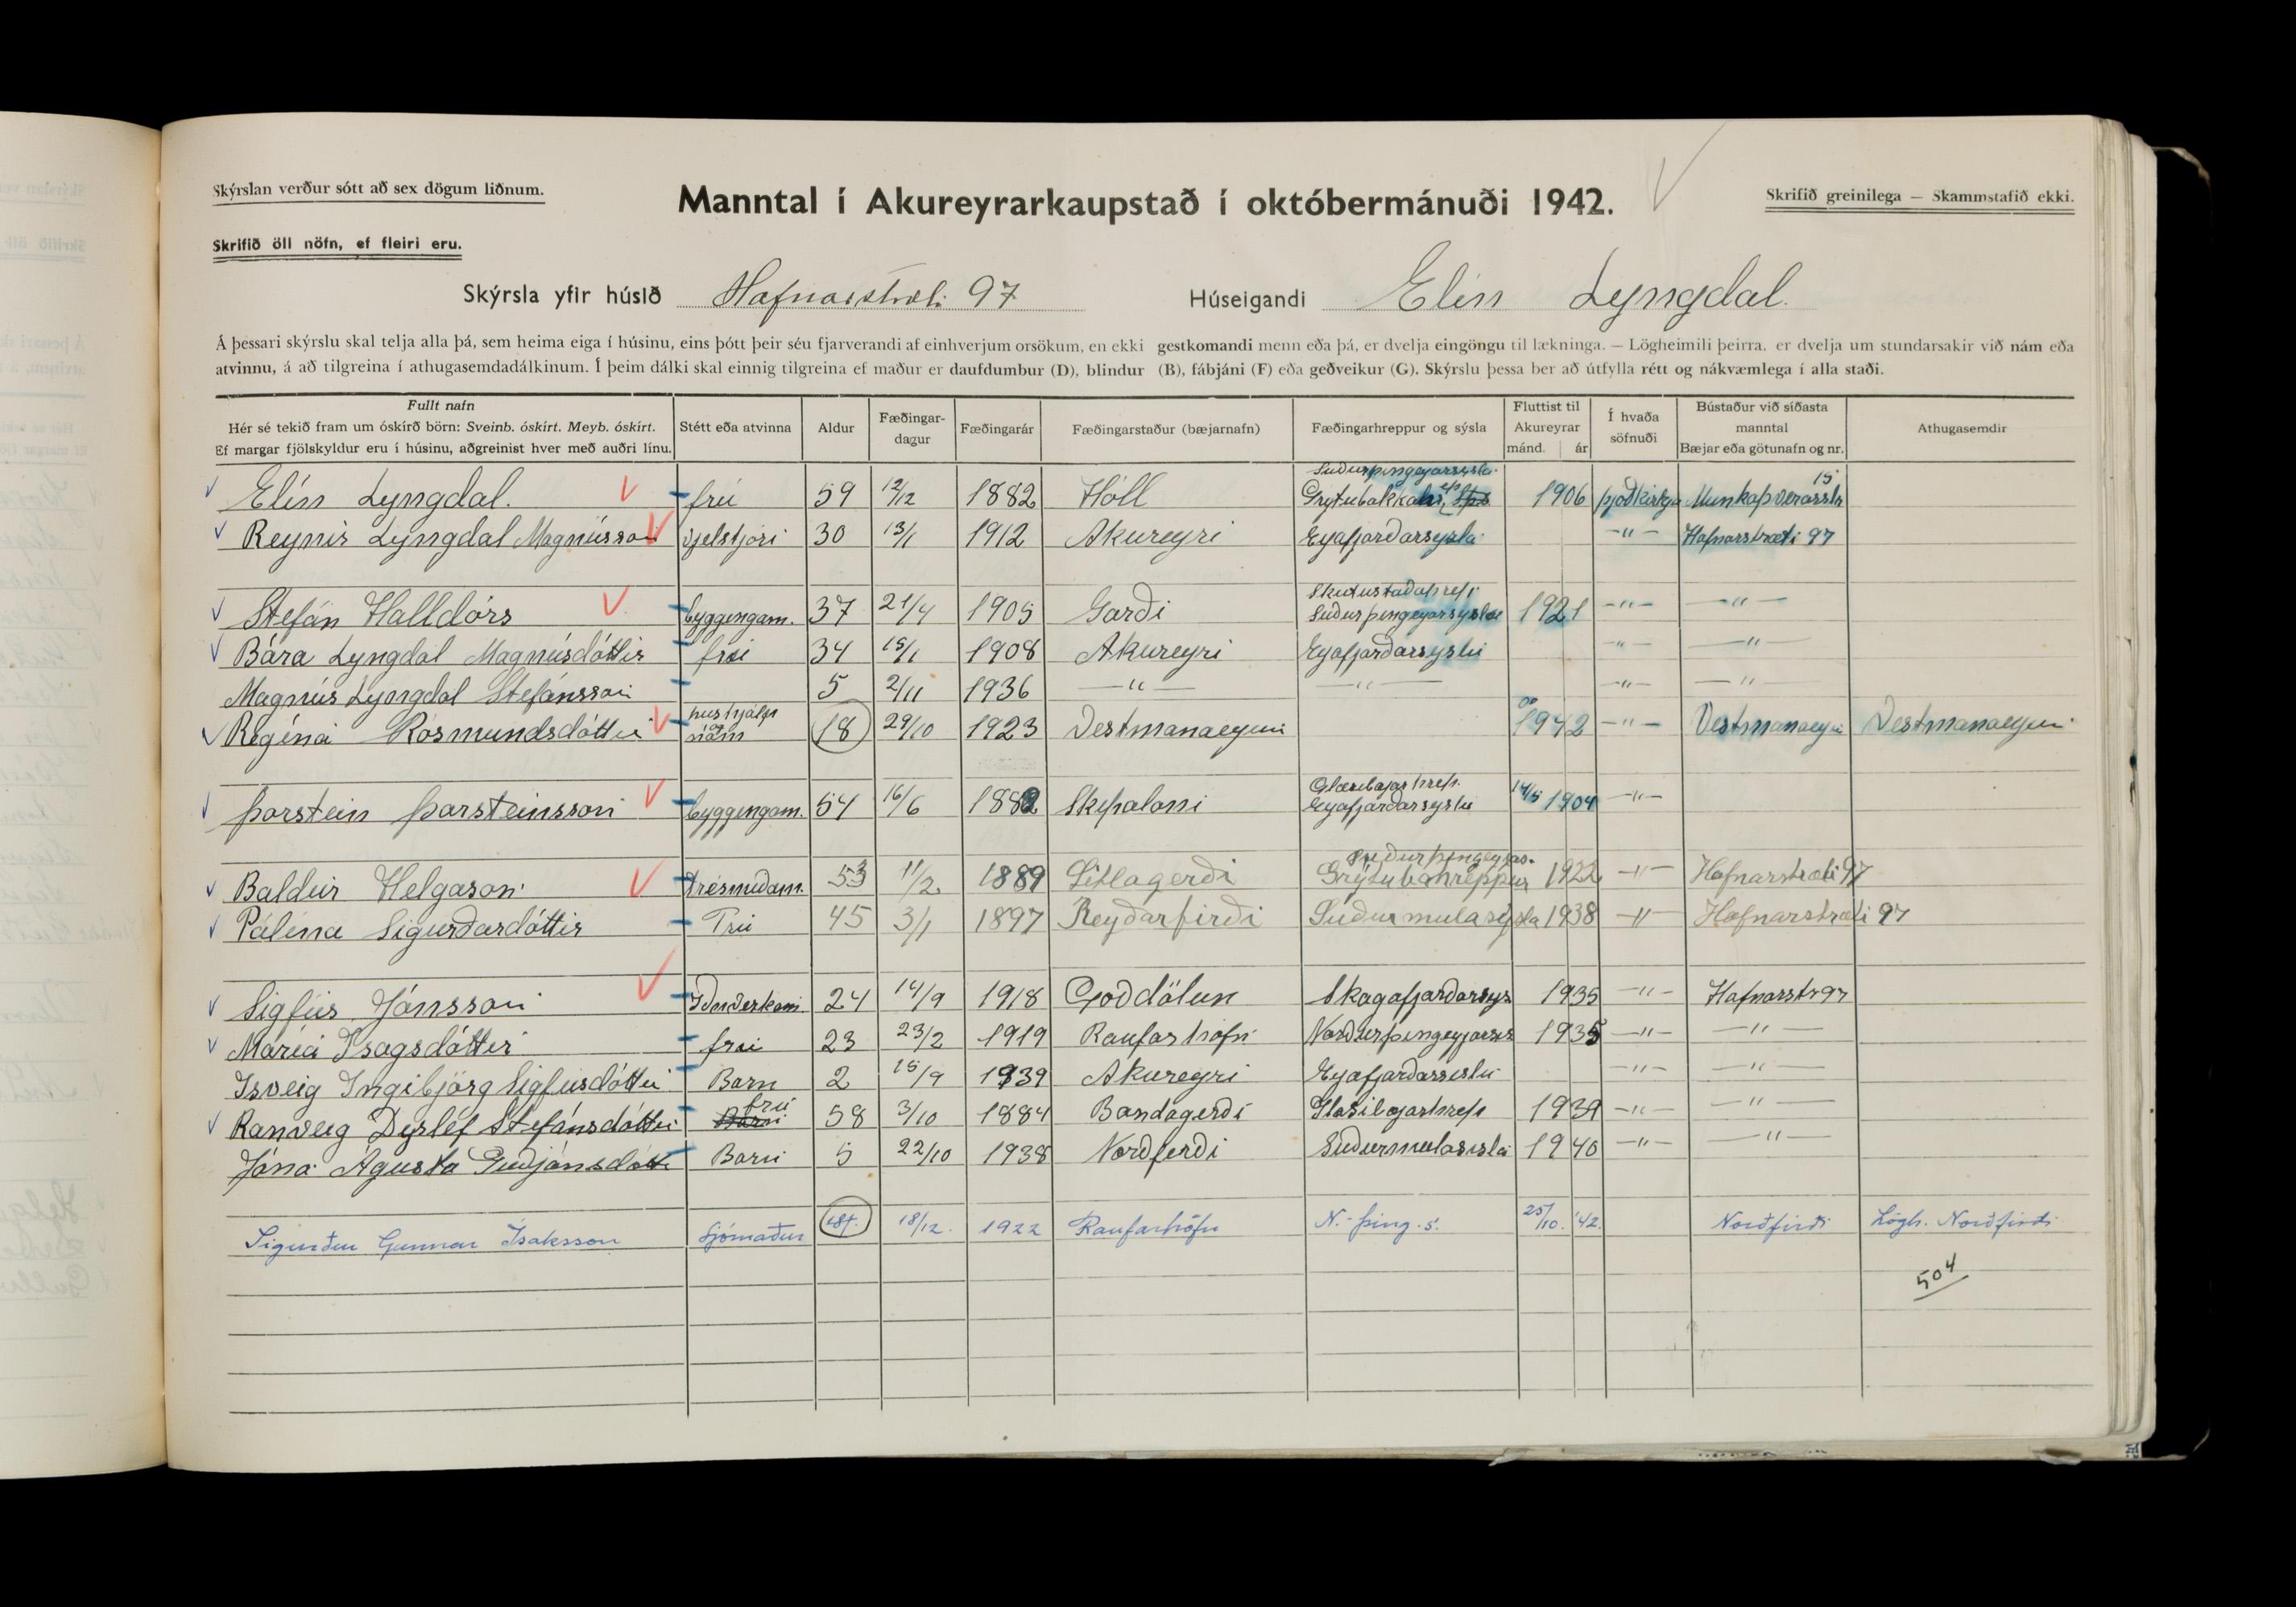 Skýrslan verður sótt að sex dögum liðnum.
Manntal í Akureyrarkaupstað í októbermánuði 1942.
Skrifið greinilega — Skammstafið ekki.
Skrifið öll nöfn, ef fleiri eru.
Skýrsla yfir húsið Hafnarstræti 97 Húseigandi Elín Lyngdal.
Á þessari skýrslu skal telja alla þá, sem heima eiga í húsinu, eins þótt þeir séu fjarverandi af einhverjum orsökum, en ekki gestkomandi menn eða þá, er dvelja eingöngu til lækninga. — Lögheimili þeirra. er dvelja um stundarsakir við nám eða
atvinnu, á að tilgreina í athugasemdadálkinum. Í þeim dálki skal einnig tilgreina ef maður er daufdumbur (D), blindur (B), fábjáni (F) eða geðveikur (G). Skýrslu þessa ber að útfylla rétt og nákvæmlega í alla staði.
Fullt nafn
Hér sé tekið fram um óskírð börn: Sveinb. óskírt. Meyb. óskírt.
Ef margar fjölskyldur eru í húsinu, aðgreinist hver með auðri línu.
Stétt eða atvinna
Aldur
Fæðingar-
dagur
Fæðingarár
Fæðingarstaður (bæjarnafn)
Fæðingarhreppur og sýsla
Fluttist til
Akureyrar
mánd. ár
Í hvaða
söfnuði
Bústaður við síðasta
manntal
Bæjar eða götunafn og nr.
Athugasemdir
Suðurþingeyarsysla
Elín Lyngdal. frú 59 12/12 1882 Höll Grytubakkahr 1906 þjoðkirkja Munkaþverarstr 15
Reynir Lyngdal Magnússon 30 13/1 1912 Akureyri Eyafjarðarsysla —"— Hafnarstræti 97
Skutustaðahrepp
Stefán Halldórs byggengam. 37 21/4 1905 Garði Suðurþingeyarsyslu 1921 —"— —"—
Bára Lyngdal Magnúsdóttir frú 34 15/1 1908 Akureyri Eyafjarðarsyslu —"— —"—
Magnús Lyngdal Stefánsson 5 2/11 1936 —"— —"— —"— —"—
Regína Rósmundsdóttir hushjálp og nám 18 29/10 1923 Vestmanaeyum 1942 —"— Vestmanaeyum Vestmanaeyum
Glæsibæjarhrep.
Þorstein Þorsteinsson byggengam. 54 16/6 1882 Skipaloni Eyafjarðarsyslu 14/5 1904 —"—
Suðurþingeyjar.
Baldur Helgason trésmiðam. 53 11/2 1889 Litlagerði Grýtubahreppur 1922 —"— Hafnarstræti 97
Pálína Sigurðardóttir Frú 45 3/1 1897 Reyðarfirði Suðurmulasysla 1938 —"— Hafnarstræti 97
Sigfús Jónsson 24 14/9 1918 Goðdölum Skagafjarðarsys 1935 —"— Hafnarstr 97
María Ísagsdóttir frú 23 23/2 1919 Raufarhöfn Norðurþingeyjarsis 1935 —"— —"—
Isveig Ingibjörg Sigfúsdóttir Barn 2 15/9 1939 Akureyri Eyafjarðarsislu —"— —"—
Ranveig Dyrlef Stefánsdóttir Barn frú 58 3/10 1884 Bandagerði Glasibæjarhrepp 1939 —"— —"—
Jóna Agusta Guðjónsdótt Barn 5 22/10 1938 Norðferði Suðurmulasisla 1940 —"— —"—
Sigurður Gunnar Ísaksson Sjómaður 18/12. 1922 Raufarhöfn N.-þing.s. 25/10. '42. Norðfirði Lögh. Norðfirði
504